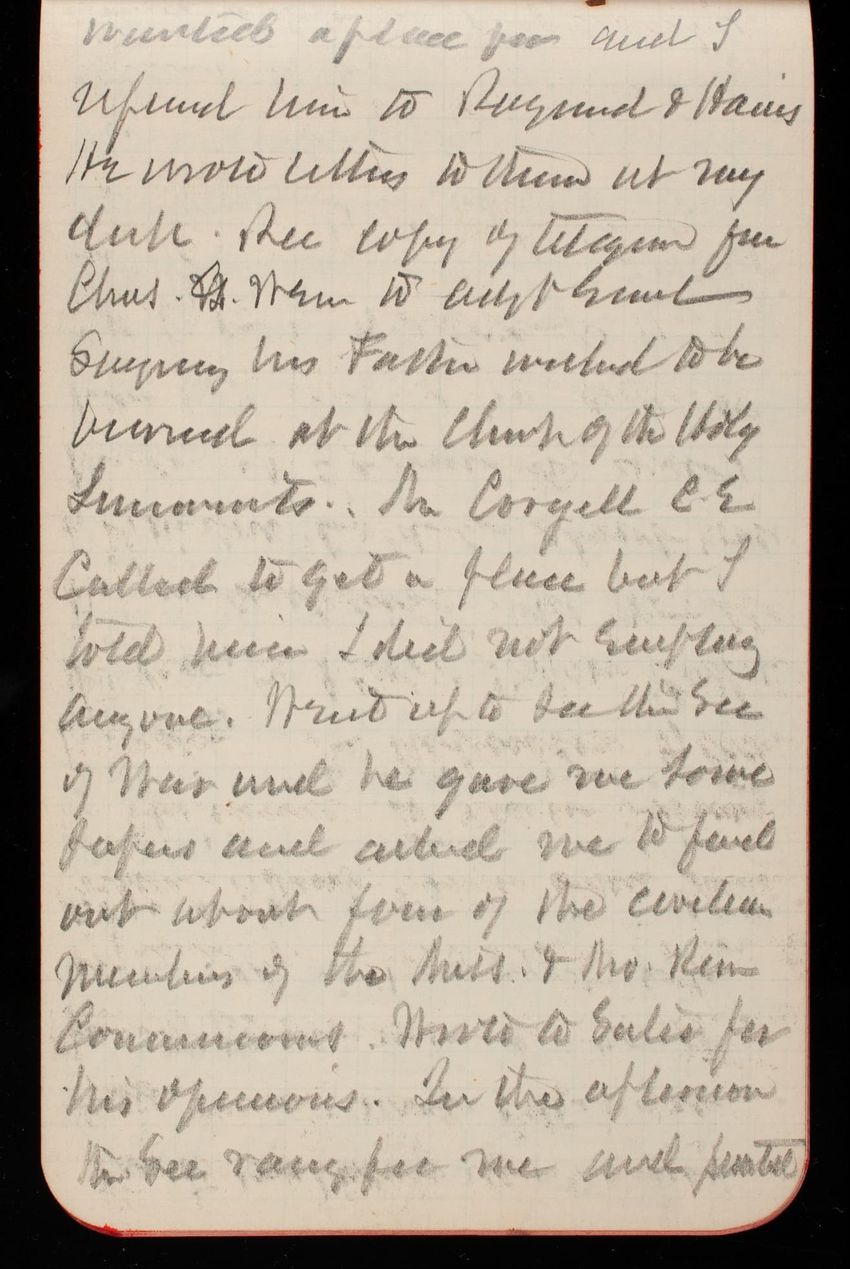 wanted a place for and I
referred him to Raymond & Hains
He wrote letters to them at my
desk. Rec copy of telegram from
Chas. Wem to adjt Genl
Saying his Father wished to be
buried at the Church of the Holy
Innocents. Mr Coryell C.E
Called to get a place but I
told him I did not employ
anyone. Went up to see the Sec
of War and he gave me some
papers and asked me to find
out about four of the civilian
Members of the Miss. & Mo. River
Commissions. Wrote to for
his opinions. In the afternoon
the Sec rang for me and